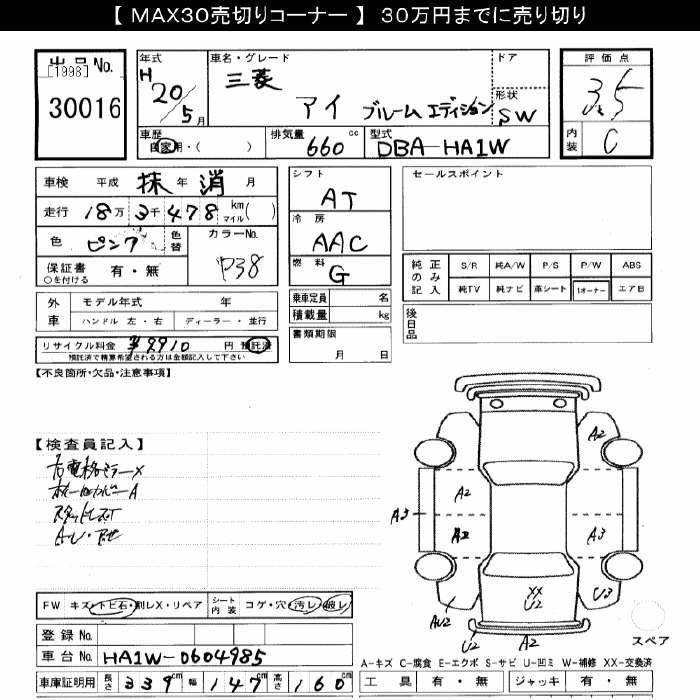 【 MAX30売切りコーナー 】 30万円までに売り切り
出品No.
[1998]
30016
年式
H 20/5月
車名・グレード
三菱
アイ ブルーム エディション
ドア
形状
SW
評価点
3.5
内装
C
車歴
自家用・( )
排気量
660 cc
型式
DBA-HA1W
車検 平成 抹 年 消 月
走行 18万 3千 478 km マイル( )
色 ピンク
色替
カラーNo.
P38
保証書 有・無
○を付ける
外車
モデル年式 年
ハンドル 左・右 ディーラー・並行
リサイクル料金 ¥9910 円 預託済
預託済で精算希望される方は金額記入して下さい
シフト
AT
冷房
AAC
燃料
G
乗車定員 名
積載量 kg
書類期限
月 日
セールスポイント
純正のみ記入
S/R 純A/W P/S P/W ABS
純TV 純ナビ 革シート 1オーナー エアB
後日品
【不良箇所・欠品・注意事項】
【検査員記入】
右電格ミラーX
ホイールカバーA
A2
A2
A3
A2
A3
XX
U2
U3
AU2
U2
A2
スペア
FW キズ・トビ石・割レX・リペア
シート内装
コゲ・穴・汚レ・破レ
登録No.
車台No. HA1W-0604985
車庫証明用 長さ 339cm 幅 147cm 高さ 160cm
A-キズ C-腐食 E-エクボ S-サビ U-凹ミ W-補修 XX-交換済
工具 有・無 ジャッキ 有・無